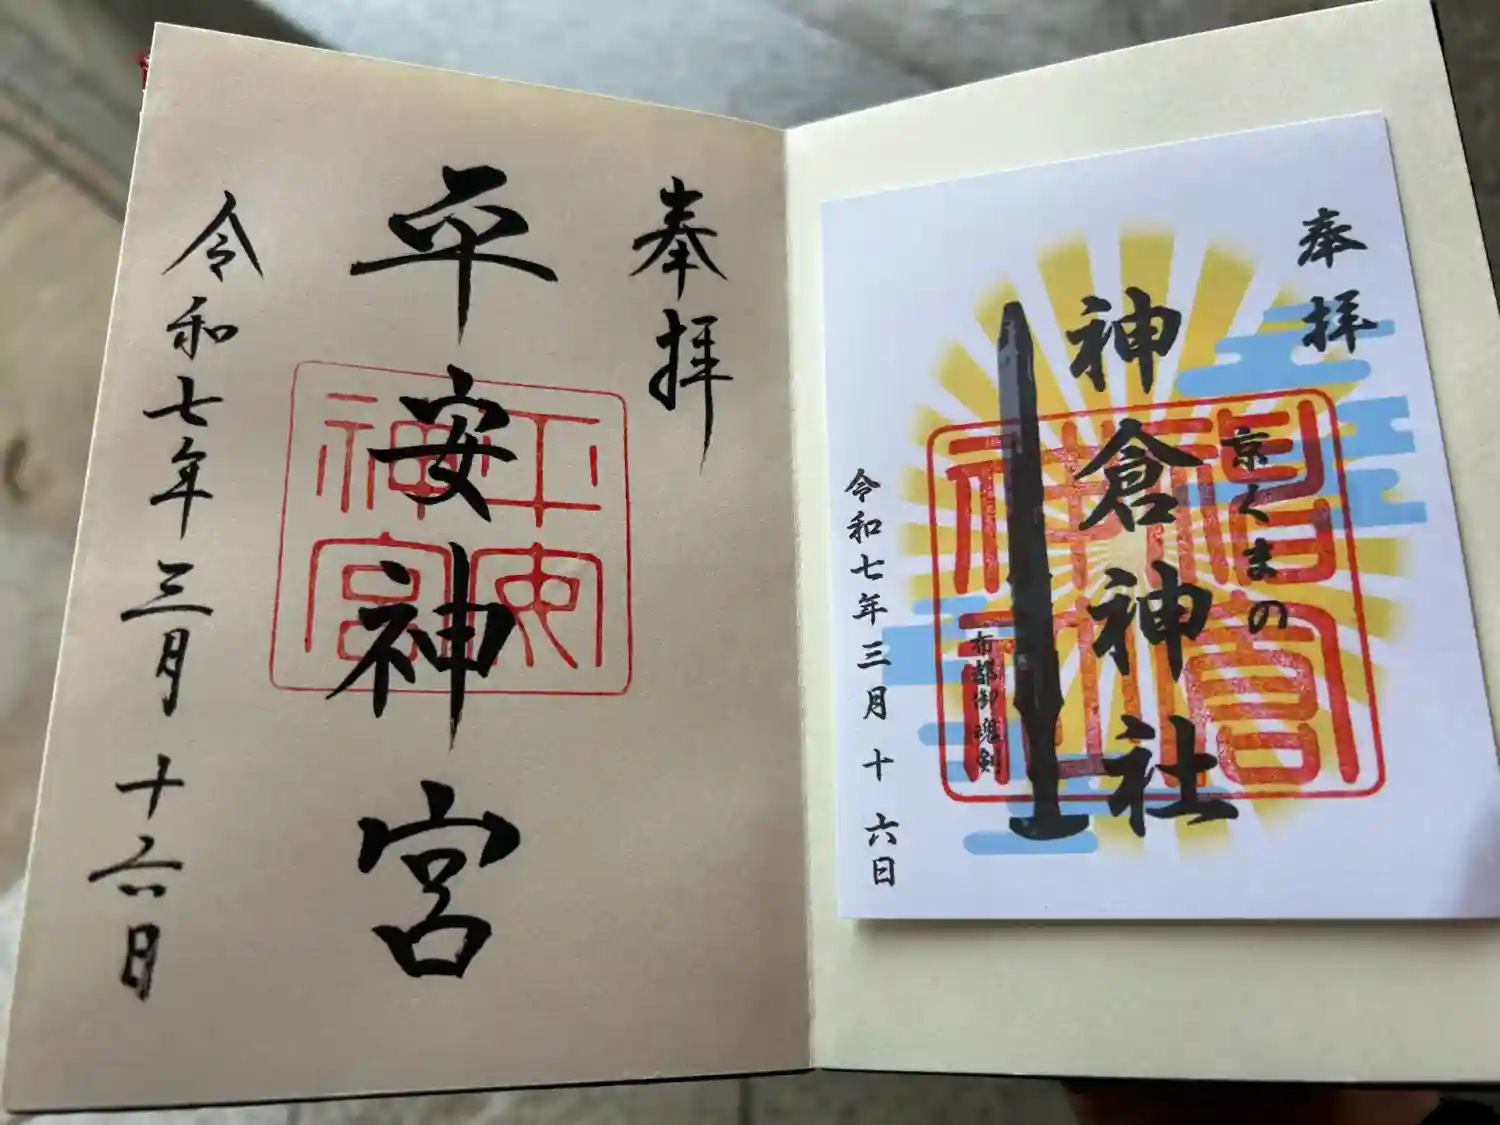 奉拝
京くまの
神倉神社
布都御魂剣
令和七年三月十六日
奉拝
平安神宮
平安神宮
令和七年三月十六日